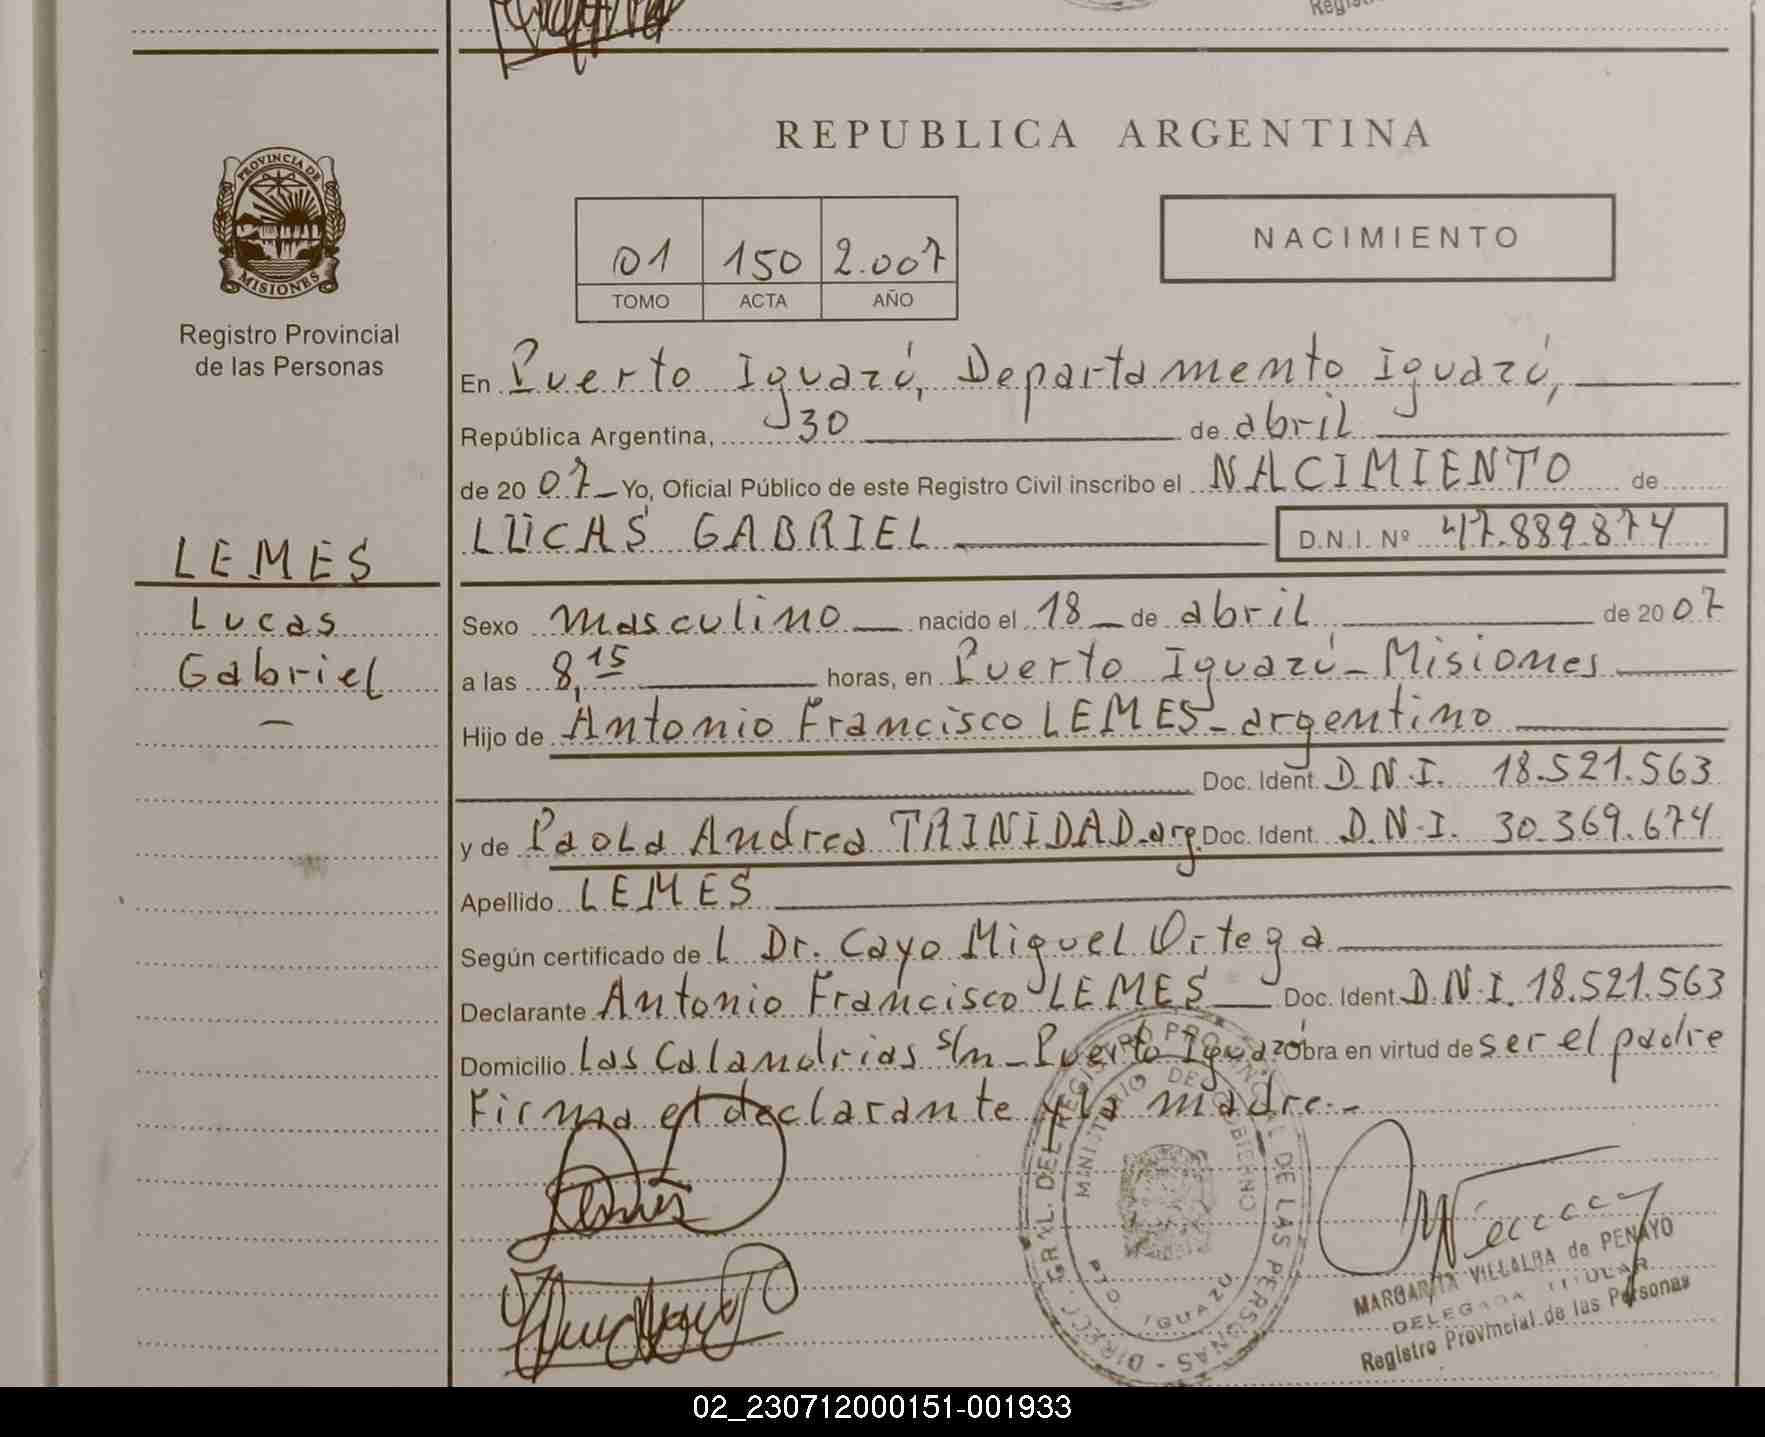 Regist
REPUBLICA ARGENTINA
PROVINCIA DE
MISIONES
Registro Provincial
de las Personas
01 150 2.007
TOMO ACTA AÑO
NACIMIENTO
En Puerto Iguazú, Departamento Iguazú,
República Argentina, 30 de abril
de 20 07 Yo, Oficial Público de este Registro Civil inscribo el NACIMIENTO de
LUCAS GABRIEL D.N.I. Nº 47.889.874
LEMES
Lucas
Gabriel
Sexo masculino nacido el 18 de abril de 20 07
a las 8,15 horas, en Puerto Iguazú - Misiones
Hijo de Antonio Francisco LEMES - argentino
Doc. Ident. D.N.I. 18.521.563
y de Paola Andrea TRINIDAD - arg. Doc. Ident. D.N.I. 30.369.674
Apellido LEMES
Según certificado de l Dr. Cayo Miguel Ortega
Declarante Antonio Francisco LEMES Doc. Ident. D.N.I. 18.521.563
Domicilio Las Calandrias s/n - Puerto Iguazú Obra en virtud de ser el padre
Firma el declarante y la madre.-
DIRECC. GRAL. DEL REGISTRO PROVINCIAL DE LAS PERSONAS -
MINISTERIO DE GOBIERNO
PTO. IGUAZU
MARGARITA VILLALBA de PENAYO
DELEGADA TITULAR
Registro Provincial de las Personas
02_230712000151-001933